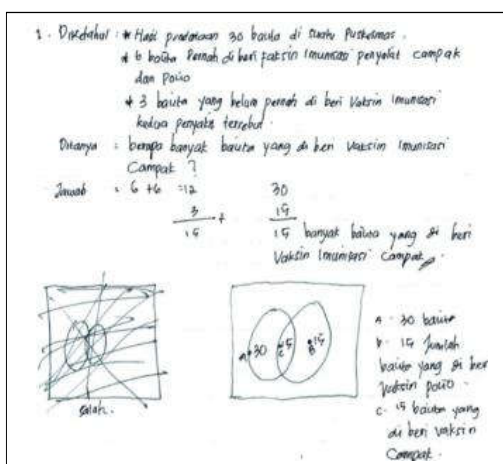 1. Diketahui : * Hasil pendataan 30 balita di suatu Puskesmas.
* 6 balita Pernah di beri vaksin Imunisasi penyakit campak
dan Polio
* 3 balita yang belum pernah di beri Vaksin Imunisasi
kedua penyakit tersebut.
Ditanya : berapa banyak balita yang di beri Vaksin Imunisasi
Campak ?
Jawab : 6 + 6 = 12 30
3 + 15
15 15 banyak balita yang di beri
Vaksin Imunisasi Campak
salah.
A 30
C 15
B 15
A. 30 balita
b. 15 Jumlah
balita yang di beri
Vaksin polio.
c. 15 balita yang
di beri vaksin
Campak.